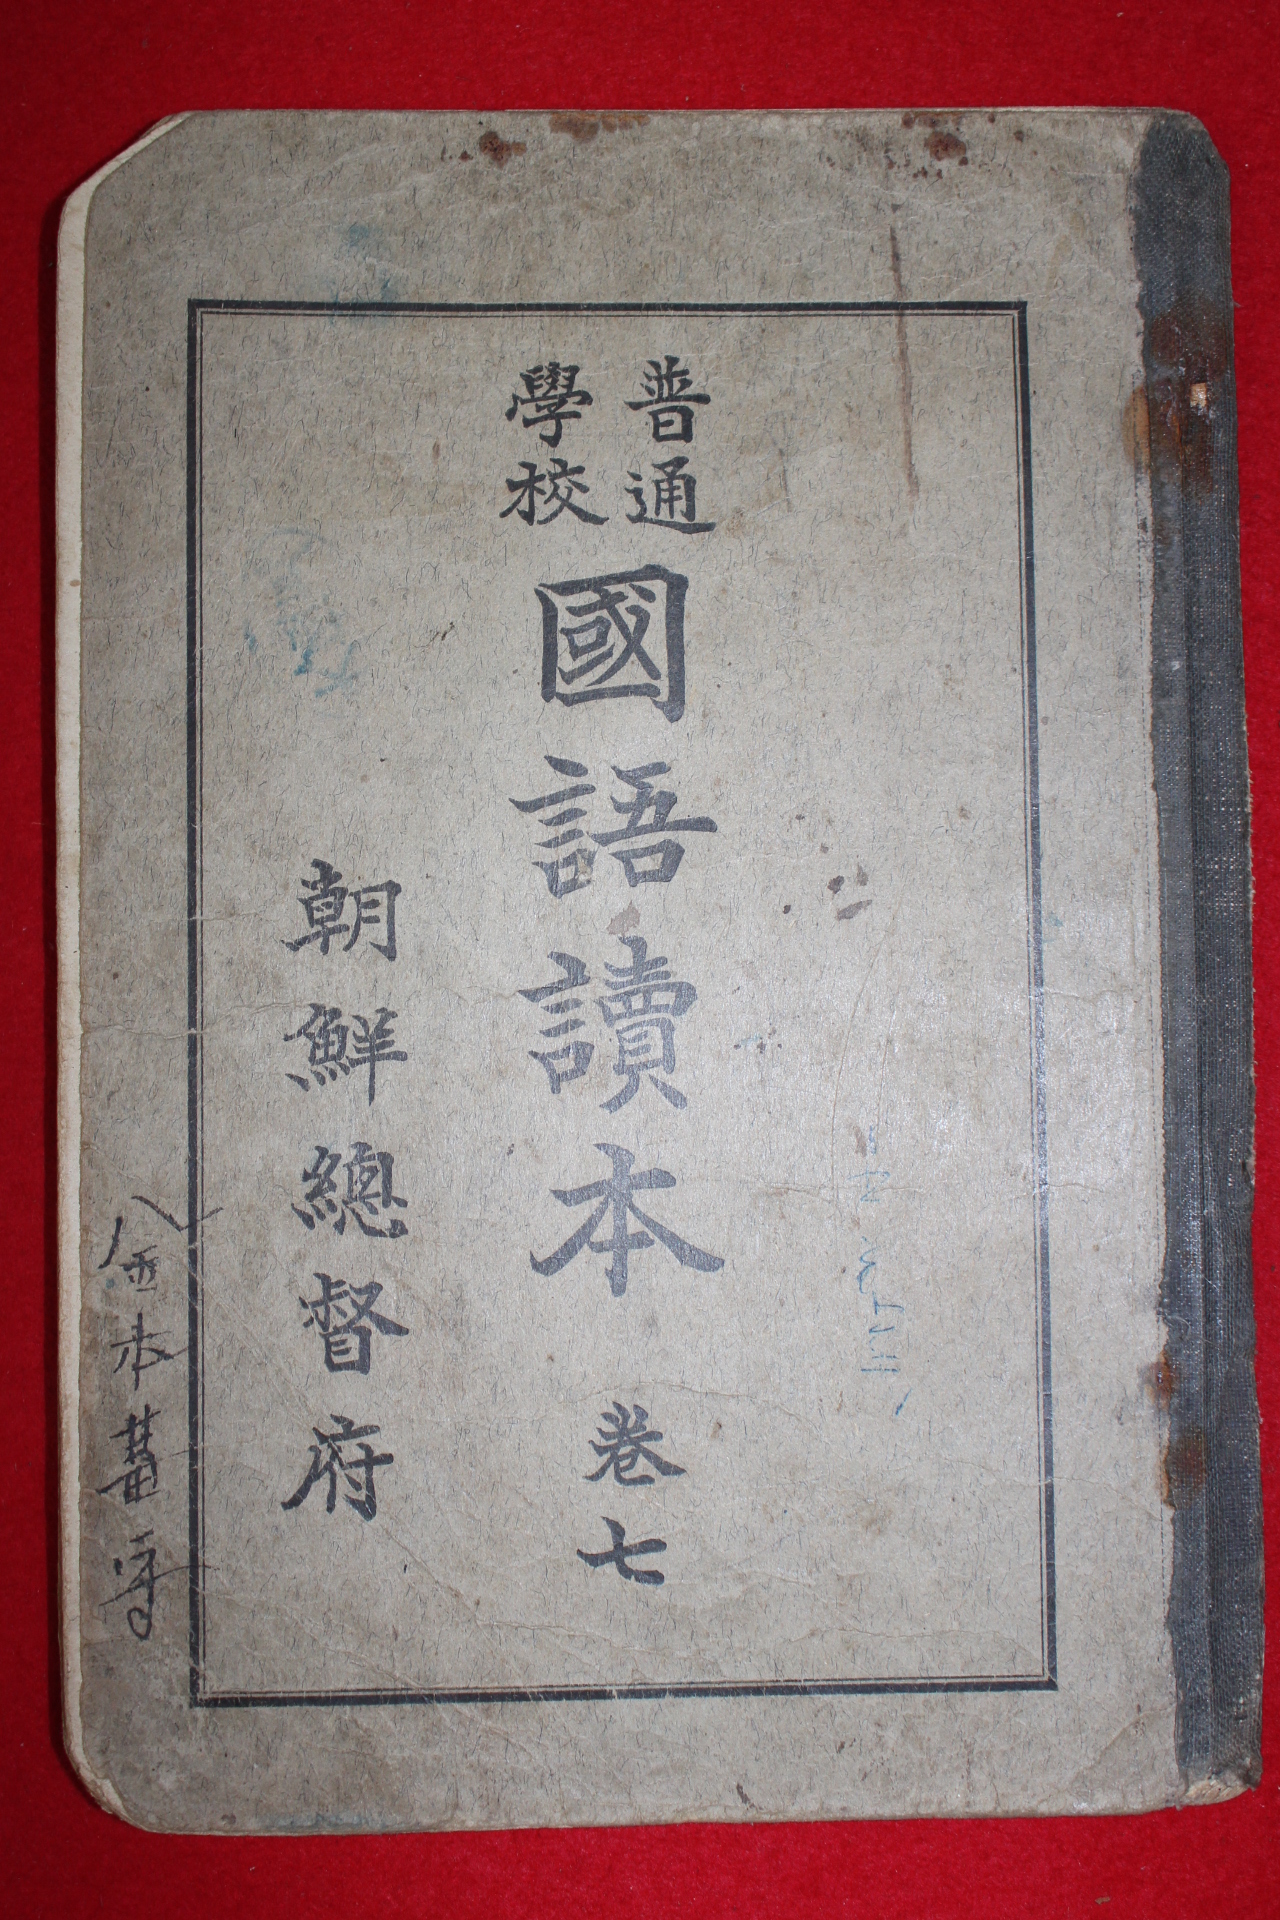 普通
學校
國語讀本 卷七
朝鮮總督府
金本